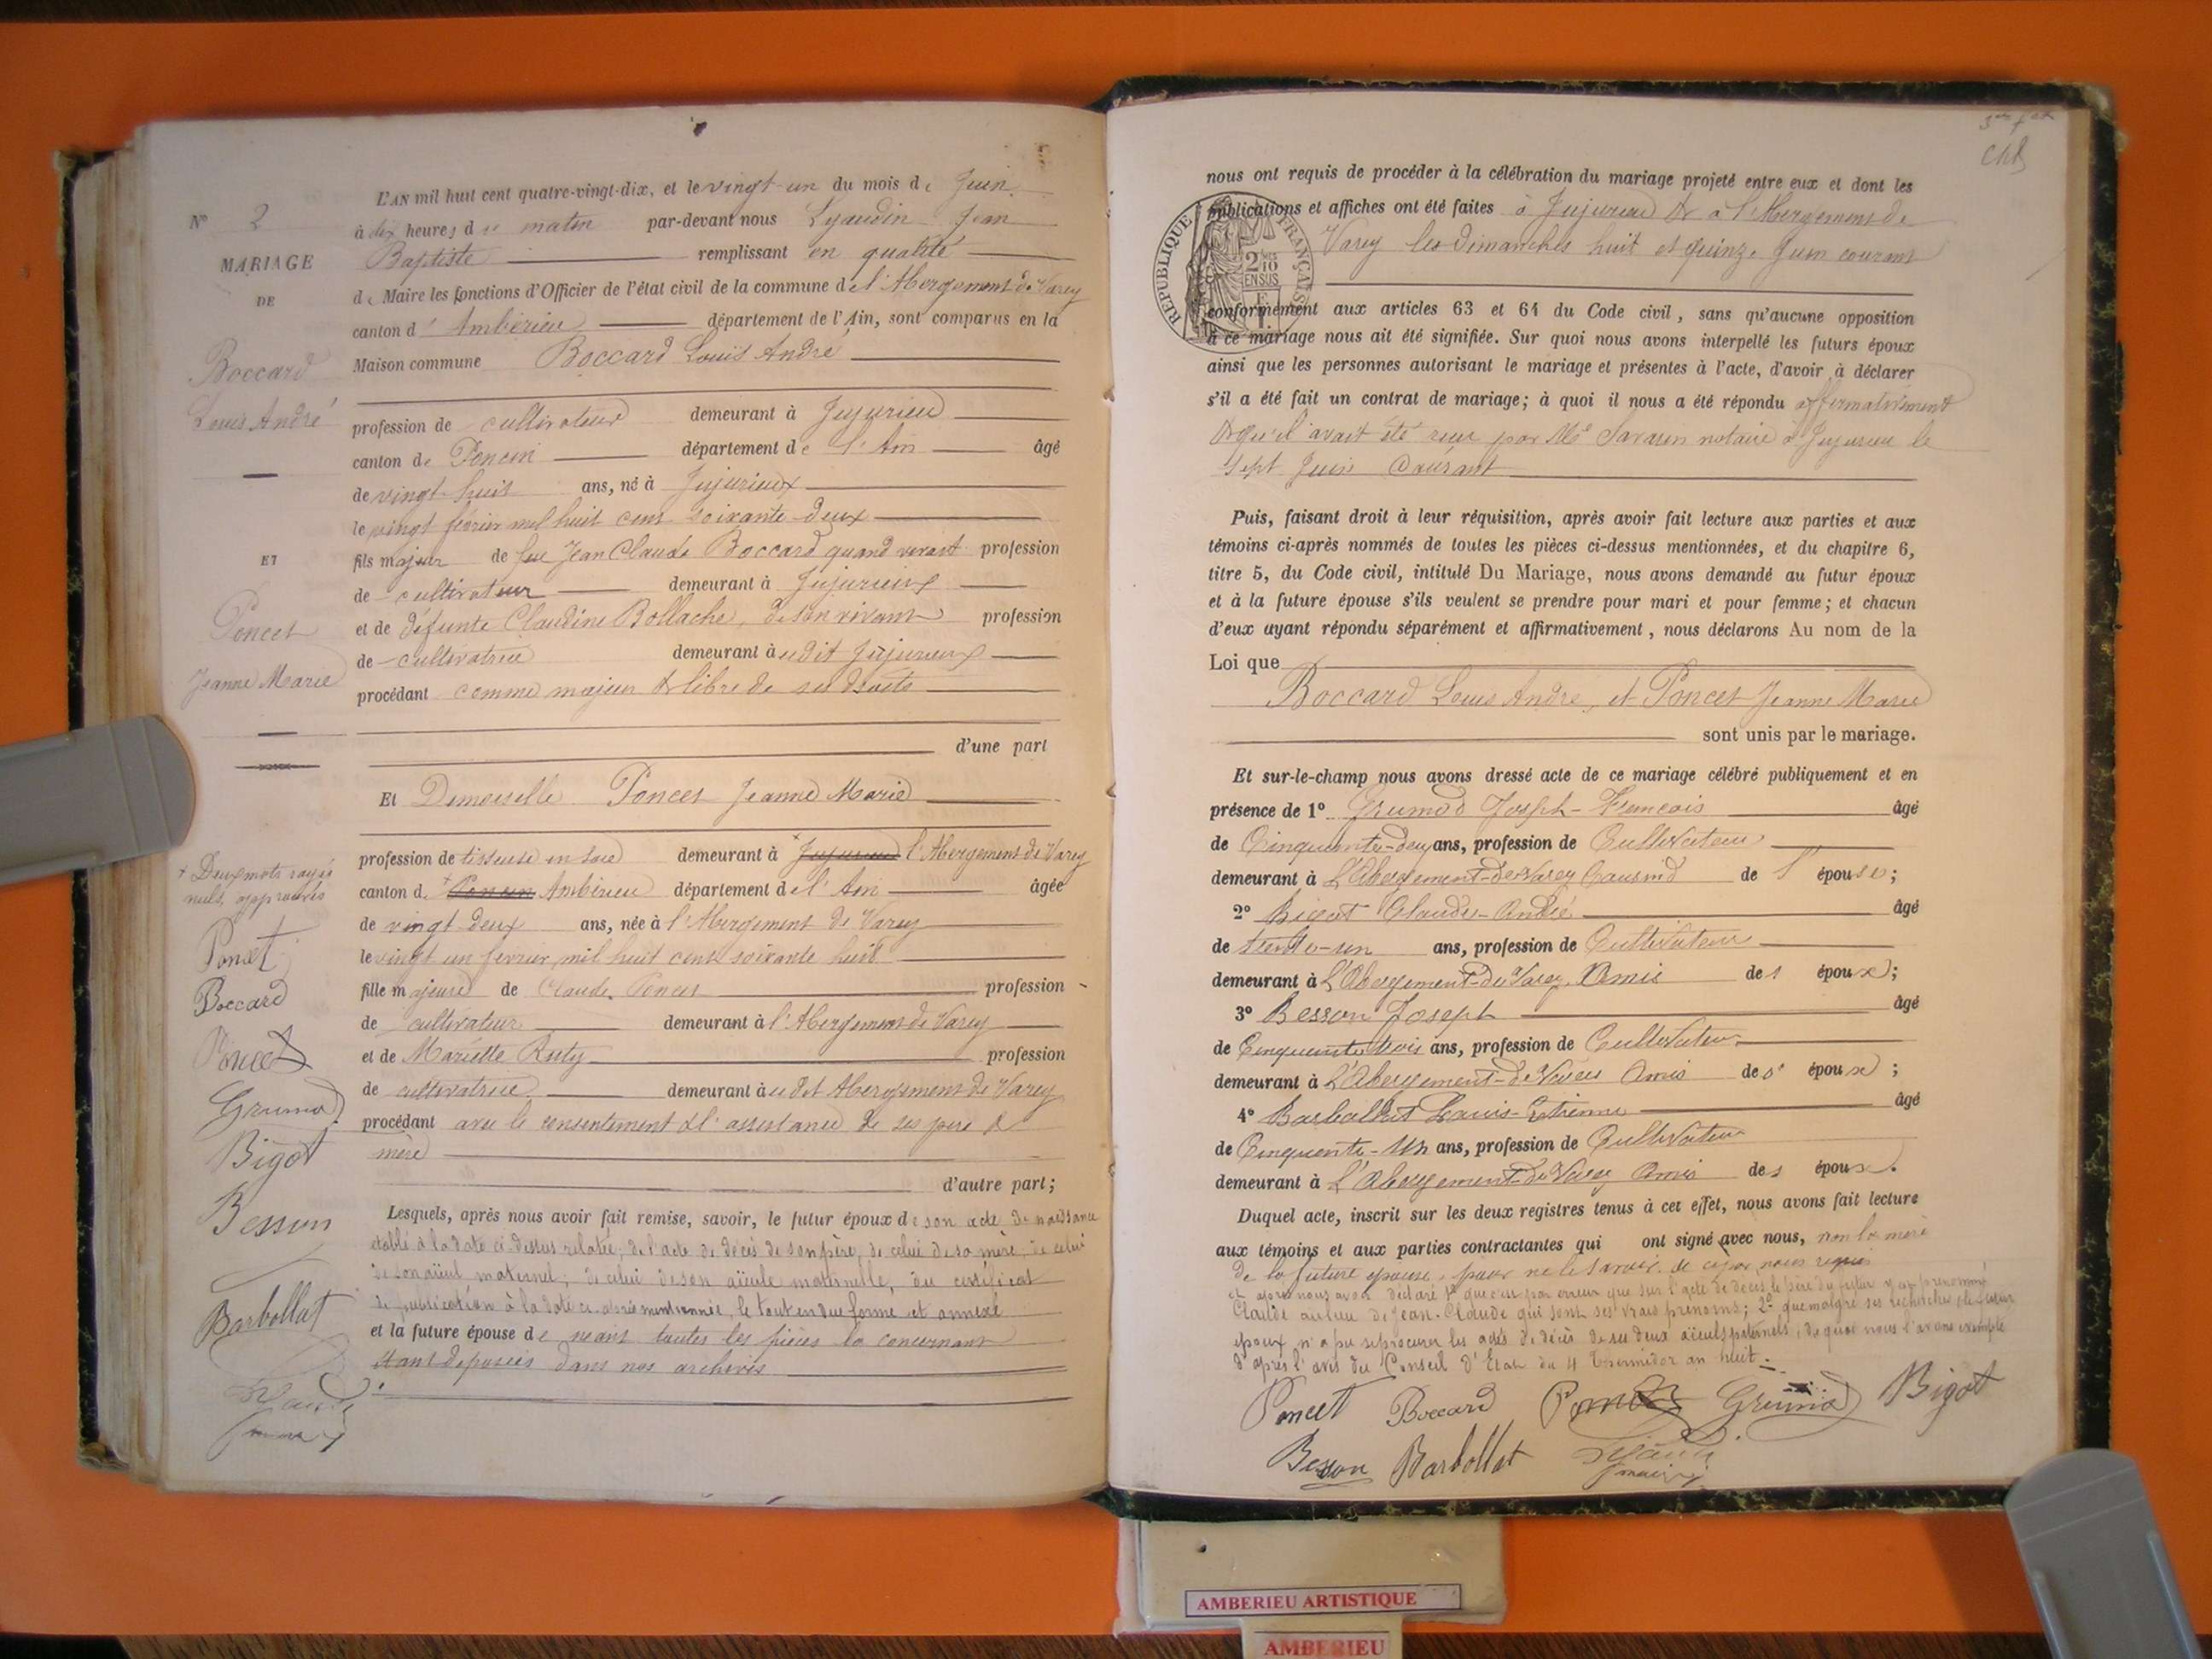 N° 2
MARIAGE
DE
Boccard
Louis André
ET
Poncet
Jeanne Marie
+ Deux mots rayés
nuls, approuvés
Poncet
Boccard
Poncet
Grumod
Bigot
Besson
Barbollat
L'AN mil huit cent quatre-vingt-dix, et le vingt-un du mois de Juin
à dix heures du matin par-devant nous Lyaudin Jean
Baptiste remplissant en qualité
de Maire les fonctions d'Officier de l'état civil de la commune de l'Abergement de Varey
canton d'Ambérieu département de l'Ain, sont comparus en la
Maison commune Boccard Louis André
profession de cultivateur demeurant à Jujurieu
canton de Poncin département de l'Ain âgé
de vingt-huit ans, né à Jujurieux
le vingt février mil huit cent soixante-deux
fils majeur de feu Jean Claude Boccard quand vivait profession
de cultivateur demeurant à Jujurieux
et de défunte Claudine Bollache, de son vivant profession
de cultivatrice demeurant audit Jujurieux
procédant comme majeur & libre de ses droits
d'une part
Et Demoiselle Poncet Jeanne Marie
profession de tisseuse en soie demeurant à + Jujurieu l'Abergement de Varey
canton d + Poncin Ambérieu département de l'Ain âgée
de vingt-deux ans, née à l'Abergement de Varey
le vingt un février mil huit cent soixante huit
fille majeure de Claude Poncet profession
de cultivateur demeurant à l'Abergement de Varey
et de Mariette Ruty profession
de cultivatrice demeurant audit Abergement de Varey
procédant avec le consentement & l'assistance de ses père &
mère
d'autre part;
Lesquels, après nous avoir fait remise, savoir, le futur époux de son acte de naissance
établi à la date ci-dessus relatée, de l'acte de décès de son père, de celui de sa mère, de celui
de son aïeul maternel; de celui de son aïeule maternelle, du certificat
de publication à la date ci-après mentionnée, le tout en due forme et annexé
et la future épouse de néant toutes les pièces la concernant
étant déposées dans nos archives
nous ont requis de procéder à la célébration du mariage projeté entre eux et dont les
publications et affiches ont été faites à Jujurieu & à l'Abergement de
Varey les dimanches huit et quinze Juin courant
RÉPUBLIQUE FRANÇAISE
2/10 EN SUS
conformément aux articles 63 et 64 du Code civil, sans qu'aucune opposition
à ce mariage nous ait été signifiée. Sur quoi nous avons interpellé les futurs époux
ainsi que les personnes autorisant le mariage et présentes à l'acte, d'avoir à déclarer
s'il a été fait un contrat de mariage; à quoi il nous a été répondu affirmativement
& qu'il avait été reçu par Me Savarin notaire à Jujurieu le
sept Juin Courant
Puis, faisant droit à leur réquisition, après avoir fait lecture aux parties et aux
témoins ci-après nommés de toutes les pièces ci-dessus mentionnées, et du chapitre 6,
titre 5, du Code civil, intitulé Du Mariage, nous avons demandé au futur époux
et à la future épouse s'ils veulent se prendre pour mari et pour femme; et chacun
d'eux ayant répondu séparément et affirmativement, nous déclarons Au nom de la
Loi que
Boccard Louis André, et Poncet Jeanne Marie
sont unis par le mariage.
Et sur-le-champ nous avons dressé acte de ce mariage célébré publiquement et en
présence de 1° Grumod Joseph-François âgé
de Cinquante-deux ans, profession de Cultivateur
demeurant à L'Abergement-de-Varey Cousin de l'épouse;
2° Bigot Claude-André âgé
de trente-un ans, profession de Cultivateur
demeurant à L'Abergement-de-Varey Amis des époux;
3° Besson Joseph âgé
de Cinquante trois ans, profession de Cultivateur
demeurant à L'Abergement-de-Varey Amis des époux;
4° Barbollat Louis-Etienne âgé
de Cinquante-un ans, profession de Cultivateur
demeurant à L'Abergement-de-Varey Amis des époux.
Duquel acte, inscrit sur les deux registres tenus à cet effet, nous avons fait lecture
aux témoins et aux parties contractantes qui ont signé avec nous, non la mère
de la future épouse, pour ne le savoir, de ce par nous requis
et après nous avoir déclaré 1° que c'est par erreur que sur l'acte de décès le père du futur y est prénommé
Claude au lieu de Jean-Claude qui sont ses vrais prénoms; 2° que malgré ses recherches le futur
époux n'a pu se procurer les actes de décès de ses deux aïeuls paternels; de quoi nous l'avons exempté
d'après l'avis du Conseil d'Etat du 4 Thermidor an huit.
Poncet Boccard Poncet Grumod Bigot
Besson Barbollat
maire
AMBERIEU ARTISTIQUE
AMBERIEU